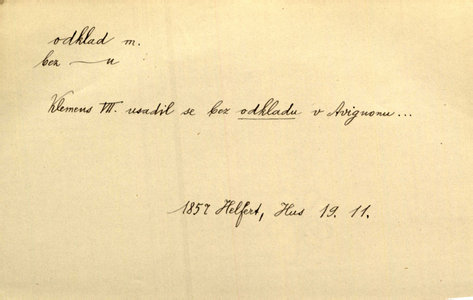 odklad m.
bez —u
Klemens VII. usadil se bez odkladu v Avignonu...
1857 Helfert, Hus 19. 11.